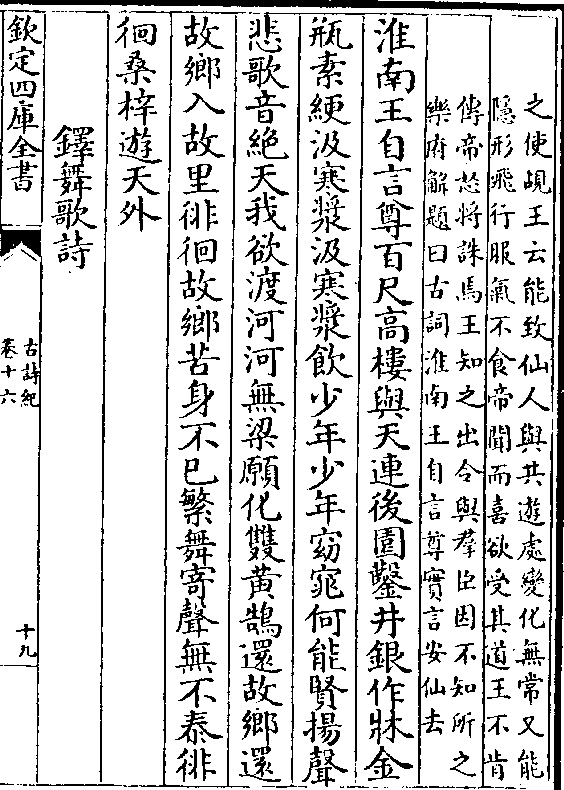 之使覘王云能致仙人與共遊處變化無常又能
隱形飛行服氣不食帝聞而喜欲受其道王不肯
傳帝怒將誅焉王知之出令與羣臣因不知所之
樂府解題曰古詞淮南王自言尊實言安仙去
淮南王自言尊百尺高樓與天連後園鑿井銀作牀金
瓶素綆汲寒漿汲寒漿飲少年少年窈窕何能賢揚聲
悲歌音絶天我欲渡河河無梁願化雙黄鵠還故鄉還
故鄉入故里徘徊故鄉苦身不已繁舞寄聲無不泰徘
徊桑梓遊天外
鐸舞歌詩
欽定四庫全書
古詩紀
卷十六
十九